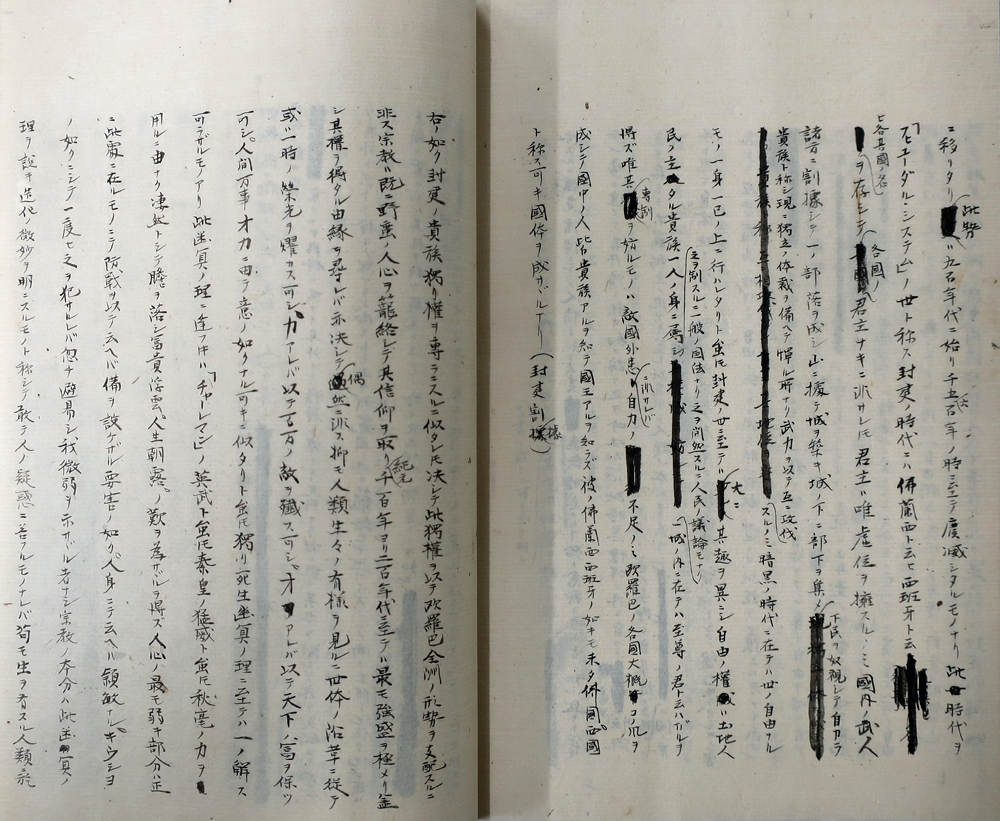 ニ移リタリ此勢ハ九百年代ニ始リ千五百年代ノ時ニ至テ廃滅シタルモノナリ此時代ヲ
「ヒユーダル・システム」ノ世ト称ス封建ノ時代ニハ佛蘭西ト云ヒ西班牙ト云
ヒ各其國ノ名ヲ存シテ各國ノ君主ナキニ非サレドモ君主ハ唯虚位ヲ擁スルノミ國内ノ武人
諸方ニ割據シテ一ノ部落ヲ成シ山ニ據テ城ヲ築キ城ノ下ニ部下ヲ集メ下民ヲ奴視シテ自カラ
貴族ト称シ現ニ獨立ノ体裁ヲ備ヘテ憚ル所ナク武力ヲ以テ互ニ攻伐
スルノミ暗黒ノ時代ニ在テハ世ノ自由ナル
モノ一身一己ノ上ニ行ハレタリト雖ドモ封建ノ世ニ至テハ大ニ其趣ヲ異ニシ自由ノ權ハ土地人
民ノ主タル貴族一人ノ身ニ属シ之ヲ制スルニ一般ノ国法ナク之ヲ間然スルノ人民ノ議論モナク一城ノ内ニ在テハ至尊ノ君ト云ハザルヲ
得ズ唯其專制ヲ妨ルモノハ敵國外患ニ非レバ自力ノ不足ノミ欧羅巴ノ各國大概コノ風ヲ
成シテ國中ノ人皆貴族アルヲ知テ國王アルヲ知ラズ彼ノ佛蘭西西班牙ノ如キモ未タ佛國西國
ト称ス可キ國体ヲ成サヾルナリ(封建割據)
右ノ如ク封建ノ貴族獨リ權ヲ專ラニスルニ似タレドモ決シテ此獨權ヲ以テ欧羅巴全洲ノ形勢ヲ支配スルニ
非ズ宗教ハ既ニ野蛮ノ人心ヲ籠絡シテ其信仰ヲ取リ紀元千百年ヨリ二百年代ニ至テハ最モ強盛ヲ極メリ蓋
シ其權ヲ得タル由縁ヲ尋レバ亦決シテ偶然ニ非ス抑モ人類生々ノ有様ヲ見ルニ世体ノ沿革ニ從テ
或ハ一時ノ榮光ヲ燿カス可シ力アレバ以テ百万ノ敵ヲ殲ス可シ才アレバ以テ天下ノ富ヲ保ツ
可シ人間万事才力ニ由テ意ノ如クナル可キニ似タリト雖ドモ獨リ死生幽冥ノ理ニ至テハ一ノ解ス
可ラザルモノアリ此幽冥ノ理ニ逢フキハ「チャレマン」ノ英武ト雖ドモ秦皇ノ猛威ト雖ドモ秋毫ノ力ヲ
用ルニ由ナク凄然トシテ膽ヲ落シ富貴浮雲人生朝露ノ歎ヲ為サヾルヲ得ズ人心ノ最モ弱キ部分ハ正
ニ此處ニ在ルモノニテ防戦ヲ以テ云ヘバ備ヲ設ケザル要害ノ如ク人身ニテ云ヘハ頴敏ナルキウシヨ
ノ如クニシテ一度ヒ之ヲ犯サルレバ忽チ避易シ我微弱ヲ示サヾル者ナシ宗教ノ本分ハ此幽冥ノ
理ヲ説キ造化ノ微妙ヲ明ニスルモノト称シテ敢テ人ノ疑惑ニ答フルモノナレバ苟モ生ヲ有スル人類ニ於